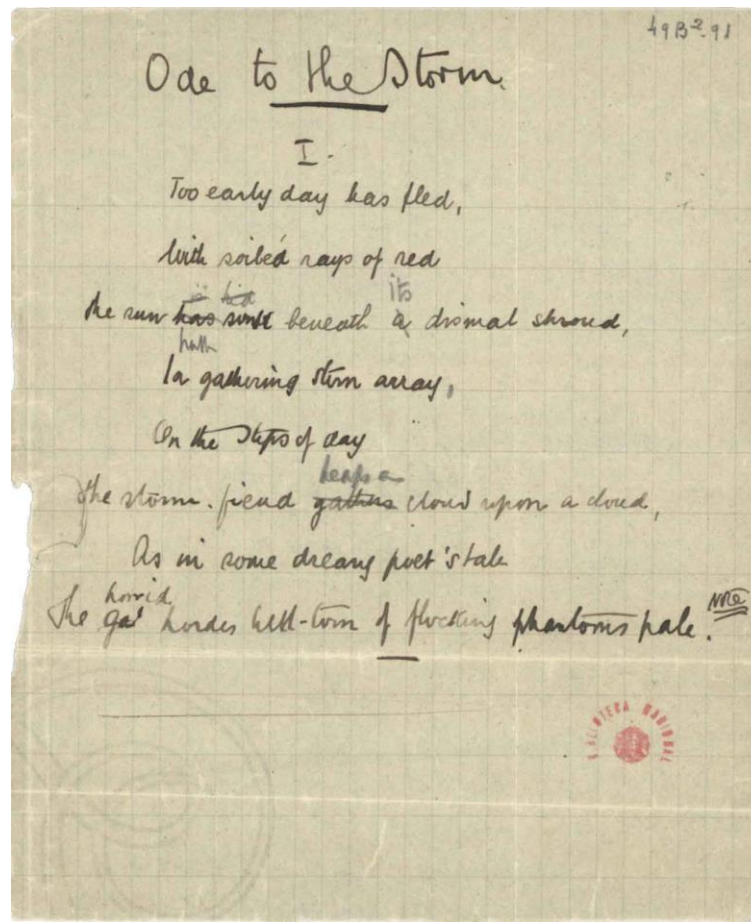 49B²-91
Ode to the Storm.
I.
Too early day has fled,
With soiled rays of red
is hid its
The sun has sunk beneath a dismal shroud,
hath
In gathering storm array,
On the steps of day
heaps a
The storm-fiend gathers cloud upon a cloud,
As in some dreary poet's tale
horrid
The hordes hell-torn of flocking phantoms pale.
note
BIBLIOTECA NACIONAL